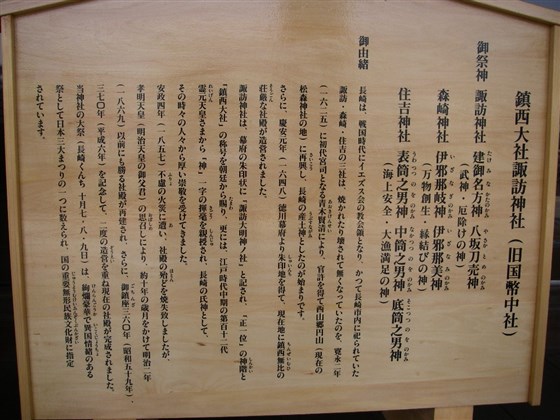 鎮西大社諏訪神社（旧国幣中社）
御祭神 諏訪神社 建御名方神 八坂刀売神
（武神・厄除けの神）
森崎神社 伊邪那岐神 伊邪那美神
（万物創生・縁結びの神）
住吉神社 表筒之男神 中筒之男神 底筒之男神
（海上安全・大漁満足の神）
御由緒
長崎は、戦国時代にイエズス会の教会領となり、かつて長崎市内に祀られていた
諏訪・森崎・住吉の三社は、焼かれたり壊されて無くなっていたのを、寛永二年
（一六二五）に初代宮司となる青木賢清によって、官許を得て西山郷円山（現在の
松森神社の地）に再興し、長崎の産土神としたのが始まりです。
さらに、慶安元年（一六四八）徳川幕府より朱印地を得て、現在地に鎮西無比の
荘厳な社殿が造営されました。
諏訪神社は、幕府の朱印状に「諏訪大明神ノ社」と記され、「正一位」の神階と
「鎮西大社」の称号を朝廷から賜り、更には、江戸時代中期の第百十二代
霊元天皇さまから「神」一字の揮毫を親授され、長崎の氏神として、
その時々の人々から厚い崇敬を受けてきました。
安政四年（一八五七）不慮の火災に遭い、社殿の殆どを焼失致しましたが、
孝明天皇（明治天皇の御父君）の思召しにより、約十年の歳月をかけて明治二年
（一八六九）以前にも勝る社殿が再建され、さらに、御鎮座三六〇年（昭和五十九年）、
三七〇年（平成六年）を記念して、二度の造営を重ね現在の社殿が完成されました。
当神社の大祭（長崎くんち 十月七・八・九日）は、絢爛豪華で異国情緒のある
祭として日本三大まつりの一つに数えられ、国の重要無形民族文化財に指定
されています。